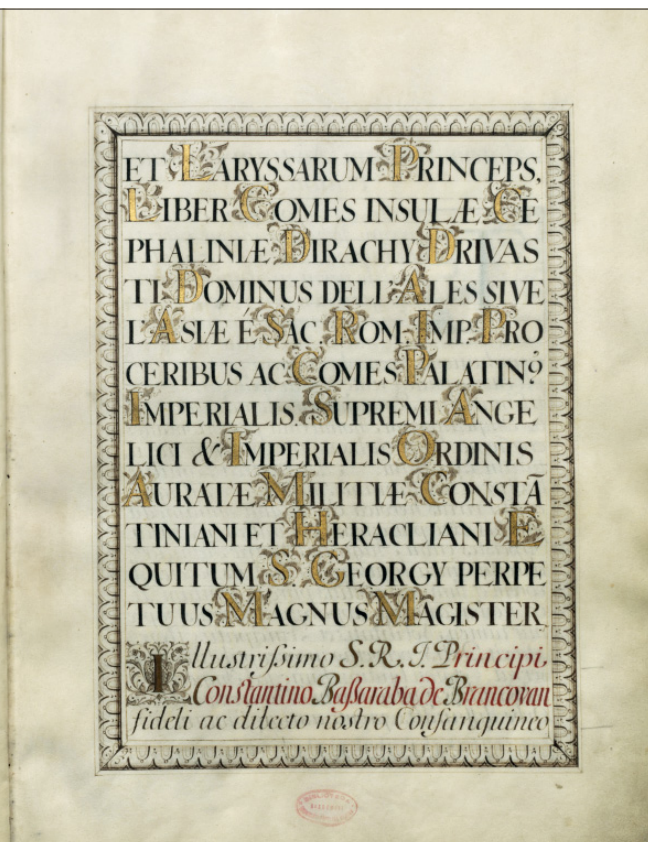 ET LARYSSARUM PRINCEPS,
LIBER COMES INSULÆ CE
PHALINIÆ DIRACHY DRIVAS
TI DOMINUS DELL'ALES SIVE
L'ASIÆ É SAC. ROM. IMP. PRO
CERIBUS AC COMES PALATIN9
IMPERIALIS, SUPREMI ANGE
LICI & IMPERIALIS ORDINIS
AURATÆ MILITIÆ CONSTÃ
TINIANI ET HERACLIANI E
QUITUM S. GEORGY PERPE
TUUS MAGNUS MAGISTER
Illustrißimo S. R. I. Principi,
Constantino Baßaraba de Brancovan
fideli ac dilecto nostro Consanguineo